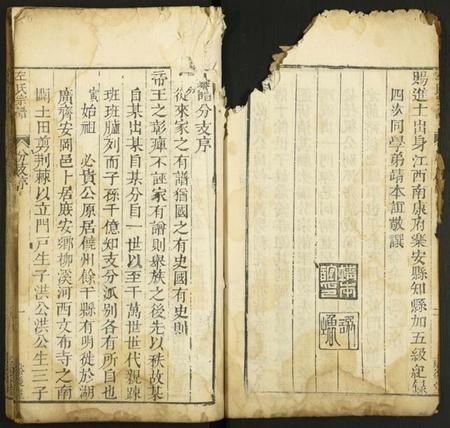 賜進士出身江西南康府樂安縣知縣加五級紀錄
四次同學弟靖本誼敬譔
譜分支序
從來家之有譜猶國之有史國有史則
帝王之彰癉不誣家有譜則舉族之後先以秩故某
自某出某自某分自一世以至千萬世世代親疎
班班臚列而子孫千億知支分派別各有所自也
始祖 必貴公原居饒州餘干縣有明徙於湖
廣齊安岡邑卜居庶安鄉柳溪河西文布寺之南
闢土田剪荆蓁以立門戸生子洪公洪公生三子
左氏宗譜
分支序
一